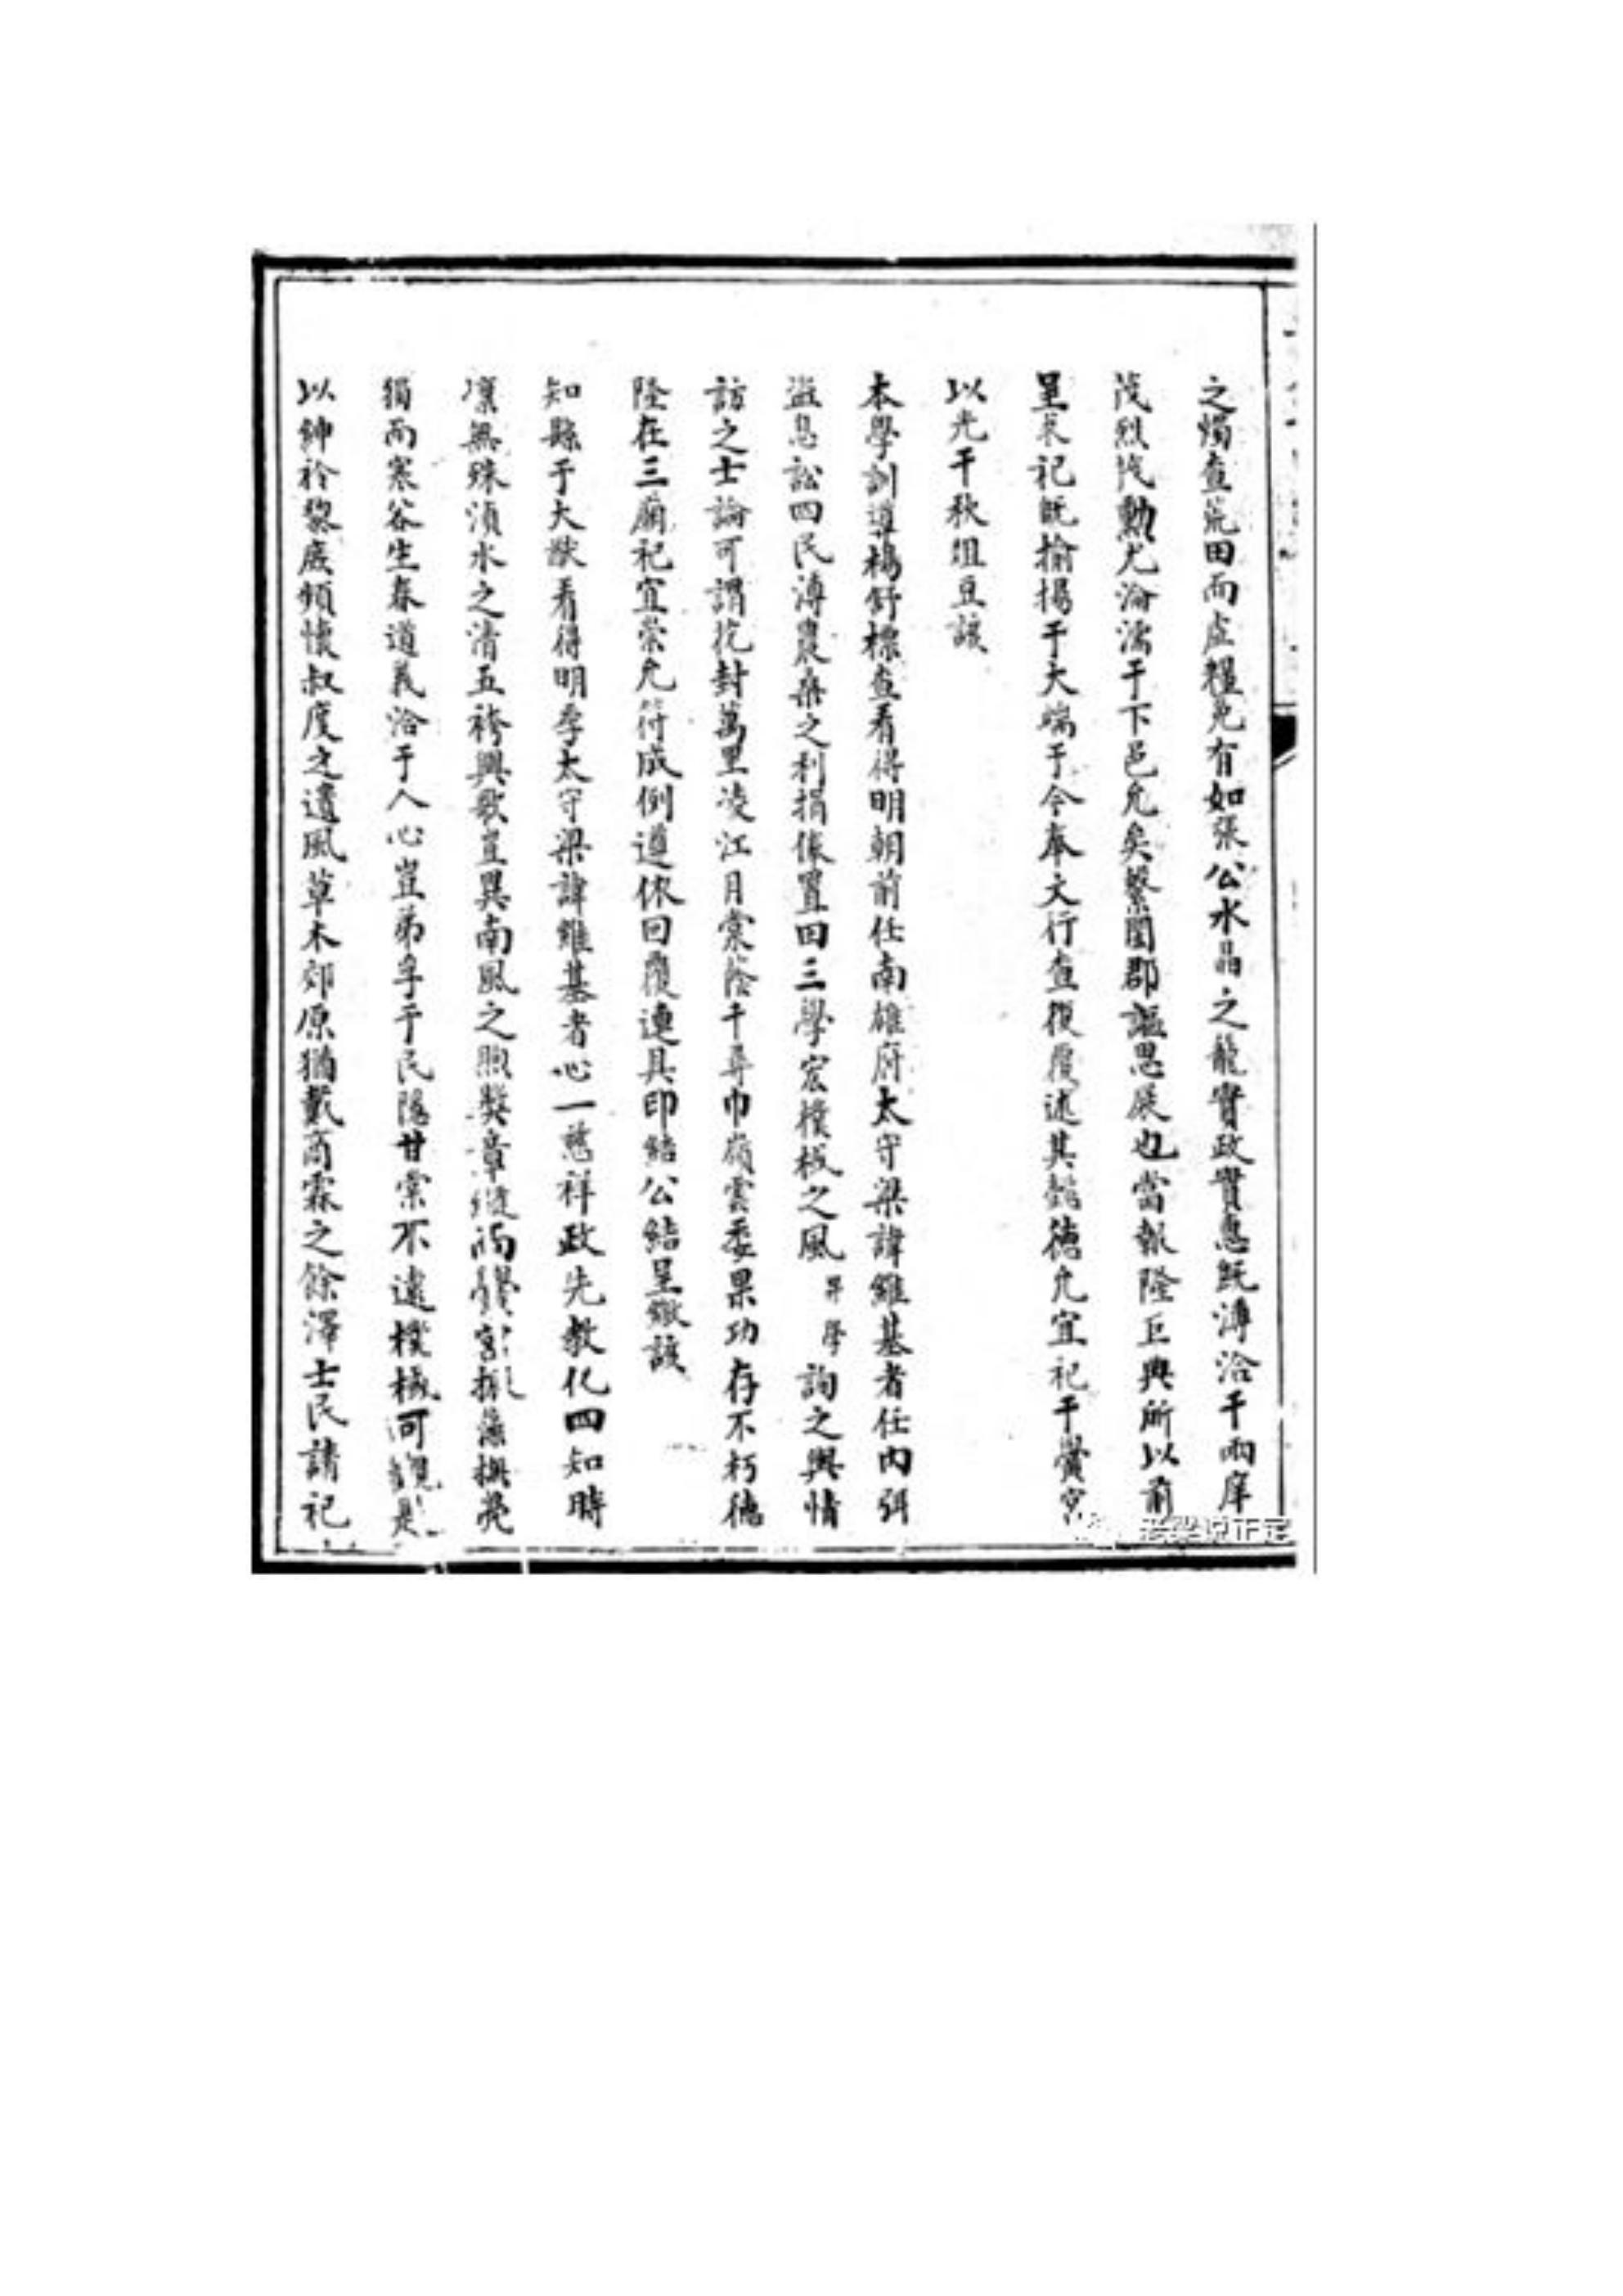 之燭查荒田而虛糧免有如張公水晶之龍實政實惠既溥洽于兩庠
茂烈茂勲尤淪濡于下邑允矣繫闔郡謳思展也當報隆巨典所以前
呈求祀既揄揚于大端于今奉文行查復覆述其懿德允宜祀于黌宮
以光千秋俎豆該
本學訓導楊舒標查看得明朝前任南雄府太守梁諱維基者任内弭
盜息訟四民溥農桑之利捐俸置田三學宏樸棫之風昇學詢之輿情
訪之士論可謂花封萬里凌江月棠蔭千尋巾嶺雲委果功存不朽德
隆在三廟祀宜崇允符成例遵依回覆連具印結公結呈繳該
知縣于大猷看得明季太守梁諱維基者心一慈祥政先教化四知時
凜無殊湞水之清五袴興歌豈異南風之煦獎章縫而黌宮振藻撫煢
獨而寒谷生春道義洽于人心豈弟孚于民隱甘棠不遠樸棫可觀是
以紳衿黎庶頻懷叔度之遺風草木郊原猶戴商霖之餘澤士民請祀